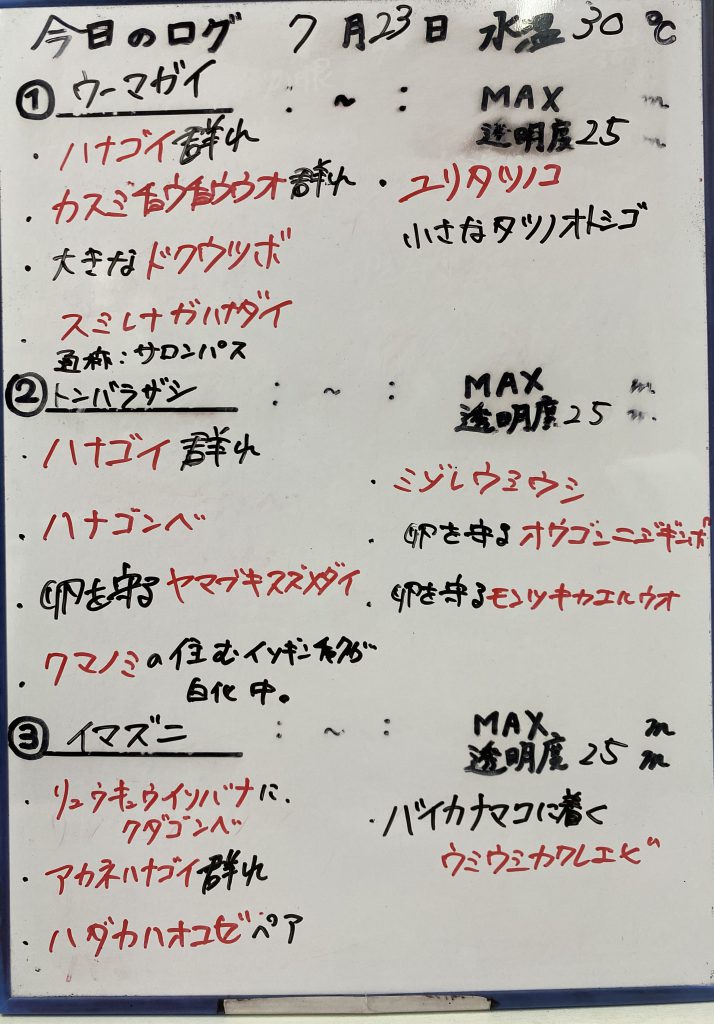 今日のログ 7月23日 水温30℃
① ウーマガイ : ~ : MAX m
透明度25 m
・ハナゴイ群れ
・カスミチョウチョウウオ群れ
・大きなドクウツボ
・スミレナガハナダイ
通称:サロンパス
・ユリタツノコ
小さなタツノオトシゴ
② トンバラザシ : ~ : MAX m
透明度25 m
・ハナゴイ群れ
・ハナゴンベ
・卵を守るヤマブキスズメダイ
・クマノミの住むイソギンチャクが
白化中。
・ミゾレウミウシ
・卵を守るオウゴンニジギンポ
・卵を守るモンツキカエルウオ
③ イマズニ : ~ : MAX m
透明度25 m
・リュウキュウイソバナに、
クダゴンベ
・アカネハナゴイ群れ
・ハダカハオコゼペア
・バイカナマコに着く
ウミウシカクレエビ